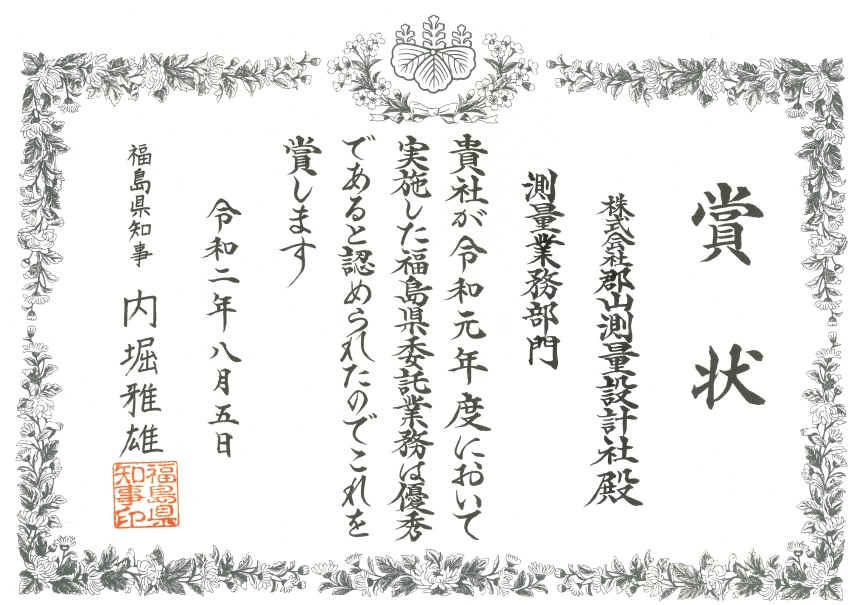 賞状
株式会社郡山測量設計社殿
測量業務部門
貴社が令和元年度において
実施した福島県委託業務は優秀
であると認められたのでこれを
賞します
令和二年八月五日
福島県知事 内堀雅雄
福島県
知事印